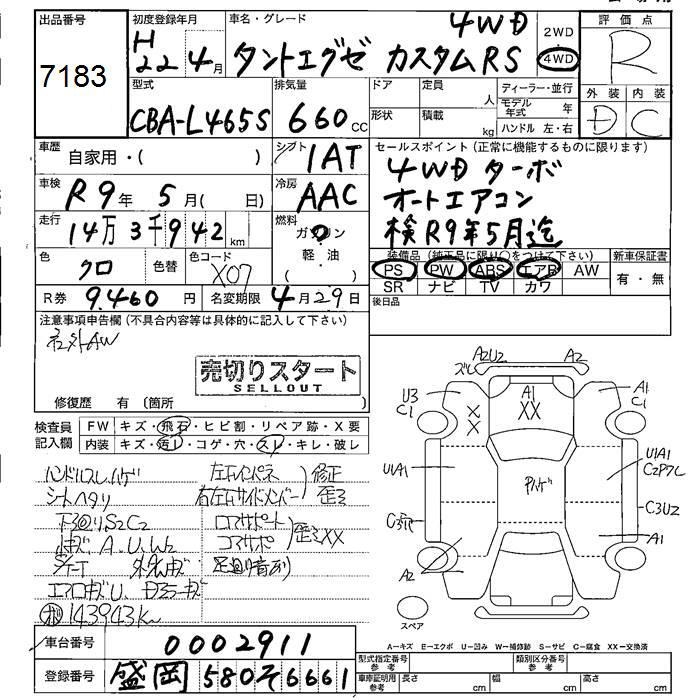 出品番号
7183
初度登録年月
H22 4月
車名・グレード
4WD
タントエグゼ カスタムRS
2WD
4WD
評価点
R
外装 内装
D C
型式
CBA-L465S
排気量
660cc
ドア
定員
人
形状
積載
kg
ディーラー・並行
モデル年式 年
ハンドル 左・右
車歴
自家用・( )
シフト
1AT
セールスポイント(正常に機能するものに限ります)
4WD ターボ
オートエアコン
検R9年5月迄
車検
R9年 5月( 日)
冷房
AAC
走行
14万3千942km
燃料
ガソリン
軽・油
( )
色
クロ
色替
色コード
X07
装備品(純正品に限り○をつけて下さい)
PS PW ABS エアB AW
SR ナビ TV カワ
新車保証書
有・無
R券 9,460円
名変期限 4月29日
後日品
注意事項申告欄(不具合内容等は具体的に記入して下さい)
社外AW
売切りスタート
SELLOUT
修復歴 有(箇所 )
検査員記入欄
FW キズ・飛石・ヒビ割・リペア跡・X要
内装 キズ・汚レ・コゲ・穴・スレ・キレ・破レ
ハンドルスレハゲ
シートヘタリ
下廻りS2C2
キズ、A、U、W2
左右インパネ
右左右サイドメンバー
修正
歪ミ
コアサポート
コアサポ
歪ミXX
足廻り音あり
エアロキズU、ドアミラーキズ
143943km
A2U2
A2
U3
C1
XX
A1
XX
A1
C1
U1A1
Pハゲ
U1A1
C2P7L
C3U2
A1
A2
スペア
A-キズ E-エクボ U-凹み W-補修跡 S-サビ C-腐食 XX-交換済
車台番号
0002911
登録番号
盛岡 580 そ 6661
型式指定番号
参考
類別区分番号
参考
車庫証明用
参考
長さ cm
幅 cm
高さ cm